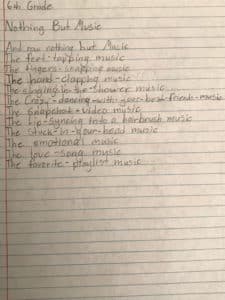 6th Grade
Nothing But Music
And now nothing but Music
The feet-tapping music
The fingers-snapping music
The hand-clapping music
The singing-in-the-shower music
The Crazy-dancing-with-your-best-friends-music
The Snapchat-video music
The lip-syncing into a hairbrush music
The stuck-in-your-head music
The emotional music
The love-song music
The favorite-playlist music